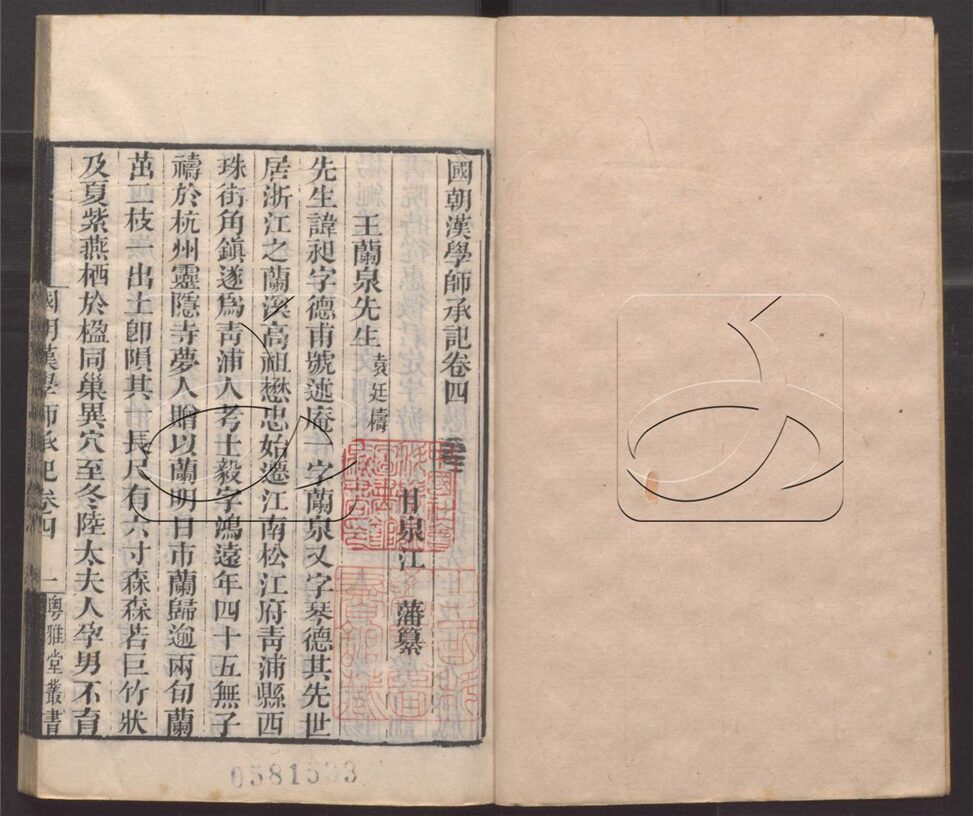 國朝漢學師承記卷四
甘泉江 藩纂
王蘭泉先生 袁廷檮
先生諱昶字德甫號述庵一字蘭泉又字琴德其先世
居浙江之蘭溪高祖懋忠始遷江南松江府青浦縣西
珠街角鎮遂爲青浦人考士毅字鴻遠年四十五無子
禱於杭州靈隱寺夢人贈以蘭明日市蘭歸逾兩旬蘭
茁四枝一出土卽隕其 長尺有六寸森森若巨竹狀
及夏紫燕栖於楹同巢異穴至冬陸太夫人孕男不育
國朝漢學師承記卷四 一 粵雅堂叢書